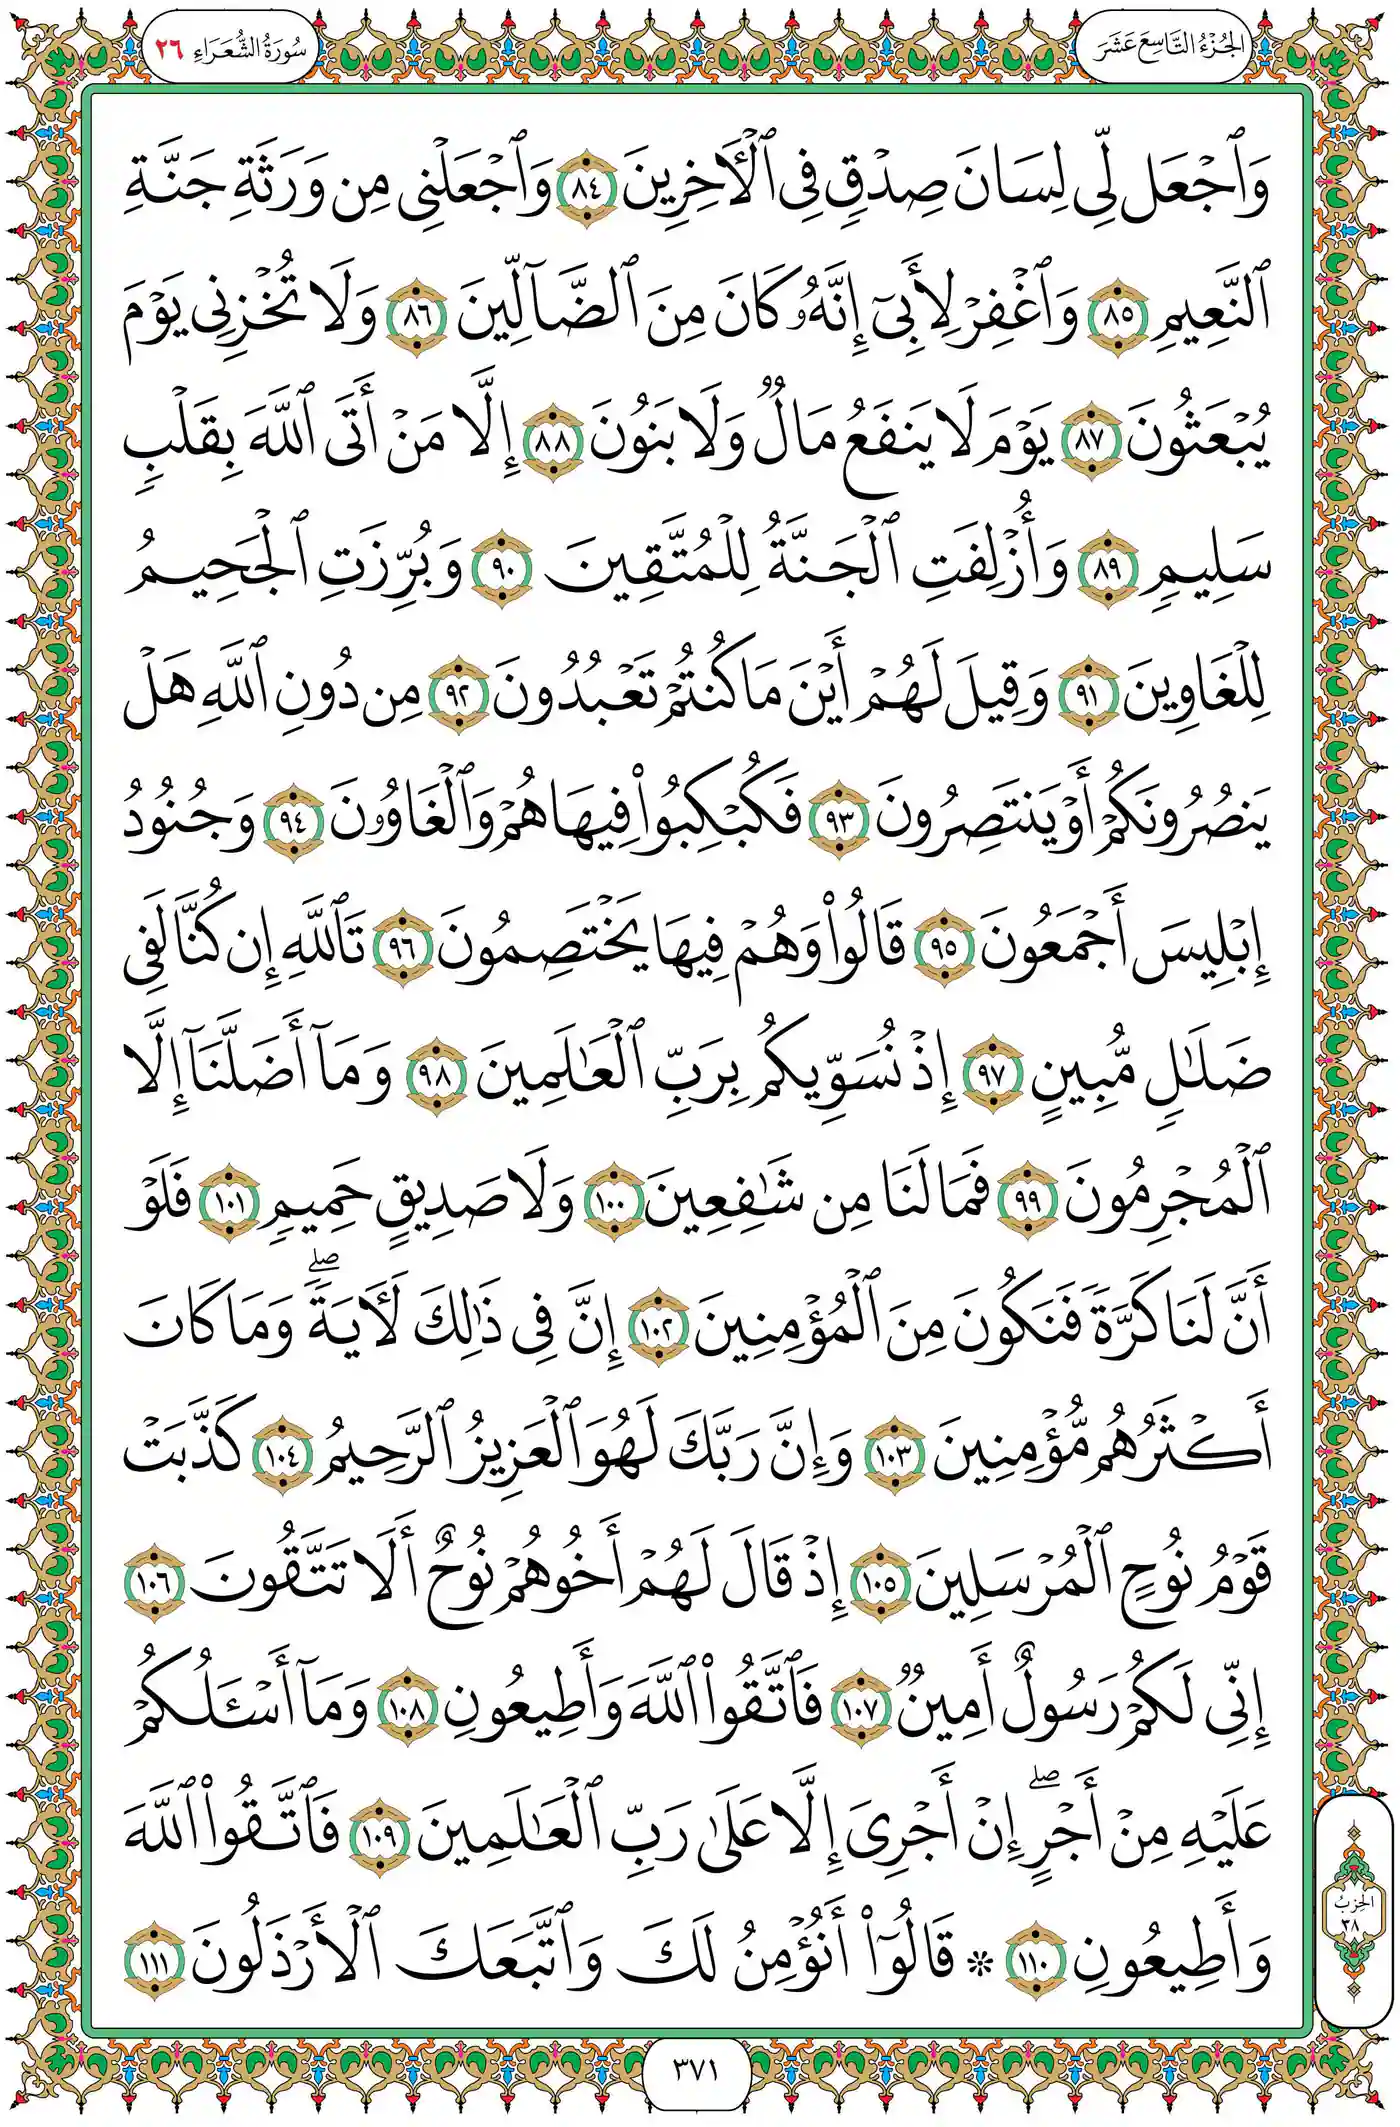 الجُزْءُ التَّاسِعَ عَشَرَ
سُورَةُ الشُّعَرَاءِ ٢٦
وَٱجۡعَل لِّي لِسَانَ صِدۡقٖ فِي ٱلۡأٓخِرِينَ ٨٤ وَٱجۡعَلۡنِي مِن وَرَثَةِ جَنَّةِ
ٱلنَّعِيمِ ٨٥ وَٱغۡفِرۡ لِأَبِيٓ إِنَّهُۥ كَانَ مِنَ ٱلضَّآلِّينَ ٨٦ وَلَا تُخۡزِنِي يَوۡمَ
يُبۡعَثُونَ ٨٧ يَوۡمَ لَا يَنفَعُ مَالٞ وَلَا بَنُونَ ٨٨ إِلَّا مَنۡ أَتَى ٱللَّهَ بِقَلۡبٖ
سَلِيمٖ ٨٩ وَأُزۡلِفَتِ ٱلۡجَنَّةُ لِلۡمُتَّقِينَ ٩٠ وَبُرِّزَتِ ٱلۡجَحِيمُ
لِلۡغَاوِينَ ٩١ وَقِيلَ لَهُمۡ أَيۡنَ مَا كُنتُمۡ تَعۡبُدُونَ ٩٢ مِن دُونِ ٱللَّهِ هَلۡ
يَنصُرُونَكُمۡ أَوۡ يَنتَصِرُونَ ٩٣ فَكُبۡكِبُواْ فِيهَا هُمۡ وَٱلۡغَاوُۥنَ ٩٤ وَجُنُودُ
إِبۡلِيسَ أَجۡمَعُونَ ٩٥ قَالُواْ وَهُمۡ فِيهَا يَخۡتَصِمُونَ ٩٦ تَٱللَّهِ إِن كُنَّا لَفِي
ضَلَٰلٖ مُّبِينٍ ٩٧ إِذۡ نُسَوِّيكُم بِرَبِّ ٱلۡعَٰلَمِينَ ٩٨ وَمَآ أَضَلَّنَآ إِلَّا
ٱلۡمُجۡرِمُونَ ٩٩ فَمَا لَنَا مِن شَٰفِعِينَ ١٠٠ وَلَا صَدِيقٍ حَمِيمٖ ١٠١ فَلَوۡ
أَنَّ لَنَا كَرَّةٗ فَنَكُونَ مِنَ ٱلۡمُؤۡمِنِينَ ١٠٢ إِنَّ فِي ذَٰلِكَ لَأٓيَةٗۖ وَمَا كَانَ
أَكۡثَرُهُم مُّؤۡمِنِينَ ١٠٣ وَإِنَّ رَبَّكَ لَهُوَ ٱلۡعَزِيزُ ٱلرَّحِيمُ ١٠٤ كَذَّبَتۡ
قَوۡمُ نُوحٍ ٱلۡمُرۡسَلِينَ ١٠٥ إِذۡ قَالَ لَهُمۡ أَخُوهُمۡ نُوحٌ أَلَا تَتَّقُونَ ١٠٦
إِنِّي لَكُمۡ رَسُولٌ أَمِينٞ ١٠٧ فَٱتَّقُواْ ٱللَّهَ وَأَطِيعُونِ ١٠٨ وَمَآ أَسۡـَٔلُكُمۡ
عَلَيۡهِ مِنۡ أَجۡرٍۖ إِنۡ أَجۡرِيَ إِلَّا عَلَىٰ رَبِّ ٱلۡعَٰلَمِينَ ١٠٩ فَٱتَّقُواْ ٱللَّهَ
وَأَطِيعُونِ ١١٠ ۞ قَالُوٓاْ أَنُؤۡمِنُ لَكَ وَٱتَّبَعَكَ ٱلۡأَرۡذَلُونَ ١١١
الحِزْبُ
٣٨
٣٧١